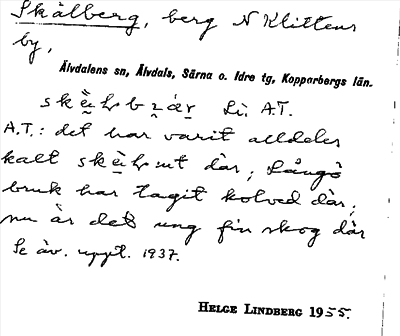 Skålberg, berg N Klittens
by,
Älvdalens sn, Älvdals, Särna o. Idre tg, Kopparbergs län.
Li. A.T.
A.T.: det har varit alldeles
kalt där, Långö
bruk har tagit kolved där,
nu är det ung fin skog där
Se äv. uppt. 1937.
HELGE LINDBERG 1955.